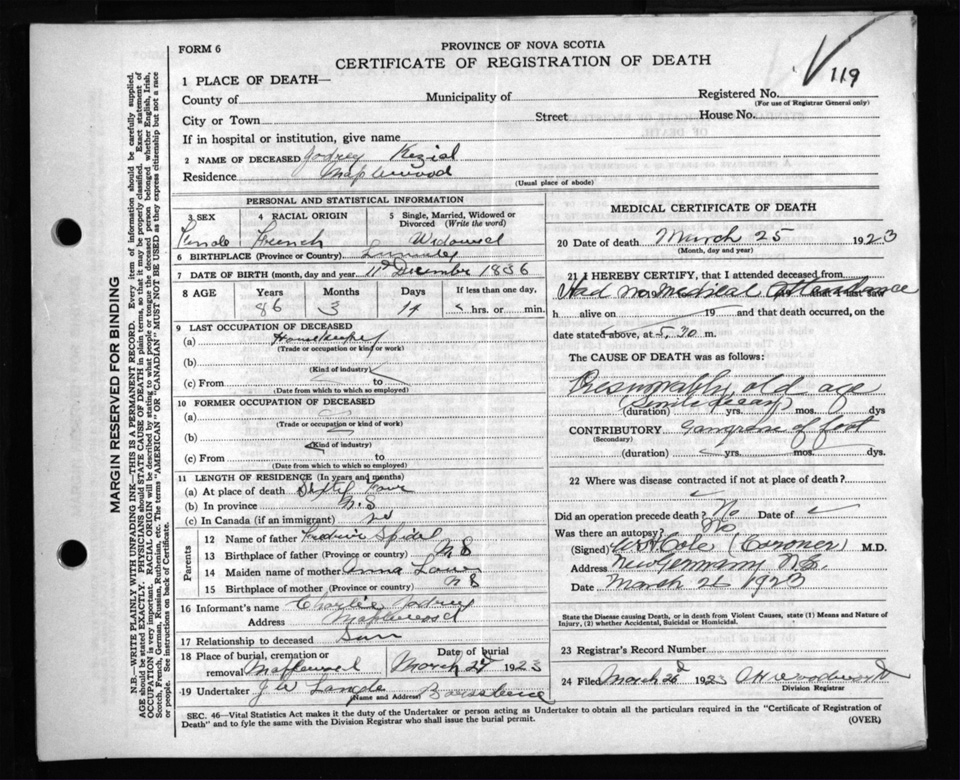 FORM 6
PROVINCE OF NOVA SCOTIA
CERTIFICATE OF REGISTRATION OF DEATH
119
1 PLACE OF DEATH—
County of Municipality of Registered No.
(For use of Registrar General only)
City or Town Street House No.
If in hospital or institution, give name
2 NAME OF DECEASED Kezial
Residence Maplewood
(Usual place of abode)
PERSONAL AND STATISTICAL INFORMATION
3 SEX 4 RACIAL ORIGIN 5 Single, Married, Widowed or Divorced (Write the word)
French
6 BIRTHPLACE (Province or Country)
7 DATE OF BIRTH (month, day and year) 11th December 1836
8 AGE Years Months Days If less than one day,
86 3 14 hrs. or min.
9 LAST OCCUPATION OF DECEASED
(a)
(Trade or occupation or kind of work)
(b)
(Kind of industry)
(c) From to
(Date from which to which so employed)
10 FORMER OCCUPATION OF DECEASED
(a)
(Trade or occupation or kind of work)
(b)
(Kind of industry)
(c) From to
(Date from which to which so employed)
11 LENGTH OF RESIDENCE (In years and months)
(a) At place of death
(b) In province N.S
(c) In Canada (if an immigrant)
Parents
12 Name of father
13 Birthplace of father (Province or country) N S
14 Maiden name of mother Anna
15 Birthplace of mother (Province or country) N S
16 Informant's name Charlie
Address Maplewood
17 Relationship to deceased Son
18 Place of burial, cremation or removal Date of burial
Maplewood March 1923
19 Undertaker J W Name and Address
MEDICAL CERTIFICATE OF DEATH
20 Date of death March 25 1923
(Month, day and year)
21 I HEREBY CERTIFY, that I attended deceased from
Had no medical attendance
h alive on 19 and that death occurred, on
date stated above, at 5,30 m.
The CAUSE OF DEATH was as follows:
Presumably old age
(Senile decay)
(duration) yrs. mos. dys
CONTRIBUTORY Gangrene of foot
(Secondary)
(duration) yrs. mos. dys.
22 Where was disease contracted if not at place of death?
Did an operation precede death? No Date of
Was there an autopsy? No
(Signed) Cole (Coroner) M.D.
Address New Germany N.S.
Date March 26 1923
State the Disease causing Death, or in death from Violent Causes, state (1) Means and Nature of
Injury, (2) whether Accidental, Suicidal or Homicidal.
23 Registrar's Record Number
24 Filed March 26 1923
Division Registrar
SEC. 46—Vital Statistics Act makes it the duty of the Undertaker or person acting as Undertaker to obtain all the particulars required in the "Certificate of Registration of
Death" and to fyle the same with the Division Registrar who shall issue the burial permit.
(OVER)
MARGIN RESERVED FOR BINDING
N.B.—WRITE PLAINLY WITH UNFADING INK—THIS IS A PERMANENT RECORD. Every item of information should be carefully supplied.
AGE should be stated EXACTLY. PHYSICIANS should STATE CAUSE OF DEATH in plain terms, so that it may be properly classified. Exact statement of
OCCUPATION is very important. RACIAL ORIGIN will be described by stating to what people or tongue the deceased person belonged whether English, Irish,
Scotch, French, German, Russian, Ruthenian, etc. The terms "AMERICAN" OR "CANADIAN" MUST NOT BE USED as they express citizenship but not a race
or people. See instructions on back of Certificate.